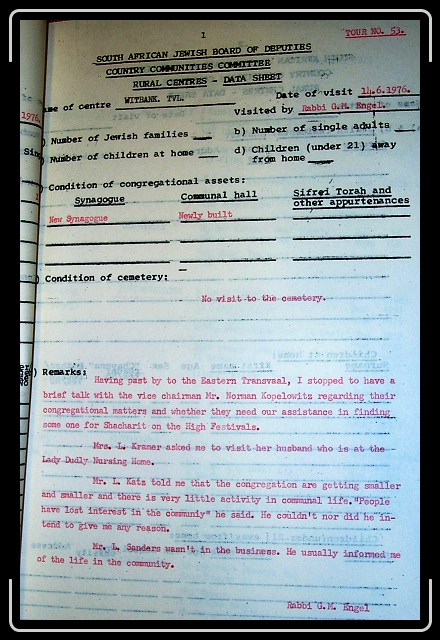 1
TOUR NO. 53.
SOUTH AFRICAN JEWISH BOARD OF DEPUTIES
COUNTRY COMMUNITIES COMMITTEE
RURAL CENTRES - DATA SHEET
Date of visit 14.6.1976.
me of centre WITBANK. TVL.
visited by Rabbi G.M. Engel.
1976.
) Number of Jewish families
b) Number of single adults
) Number of children at home
d) Children (under 21) away
from home
Sin
) Condition of congregational assets:
Synagogue Communal hall Sifrei Torah and
other appurtenances
New Synagogue Newly built
) Condition of cemetery:
No visit to the cemetery.
) Remarks:
Having past by to the Eastern Transvaal, I stopped to have a
brief talk with the vice chairman Mr. Norman Kopelowitz regarding their
congregational matters and whether they need our assistance in finding
some one for Shacharit on the High Festivals.
Mrs. L. Kramer asked me to visit her husband who is at the
Lady Dudly Nursing Home.
Mr. L. Katz told me that the congregation are getting smaller
and smaller and there is very little activity in communal life."People
have lost interest in the communiy" he said. He couldn't nor did he in-
tend to give me any reason.
Mr. L. Sanders wasn't in the business. He usually informed me
of the life in the community.
Rabbi G.M. Engel